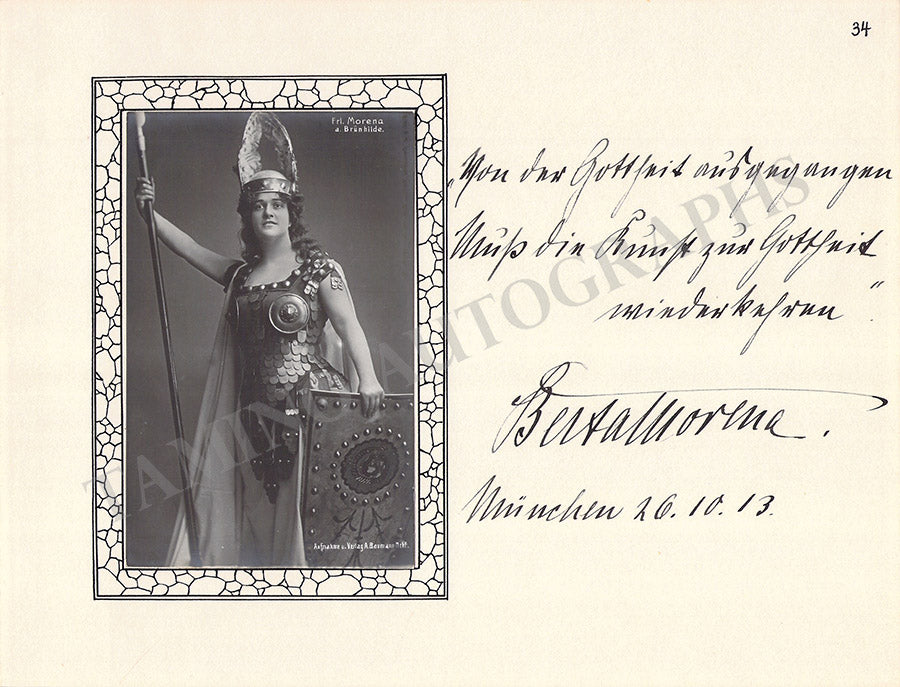 34
Frl. Morena
a. Brünhilde.
„Von der Gottheit ausgegangen
Muß die Kunst zur Gottheit
wiederkehren".
Berta Morena.
München 26. 10. 13.
TAMINO AUTOGRAPHS